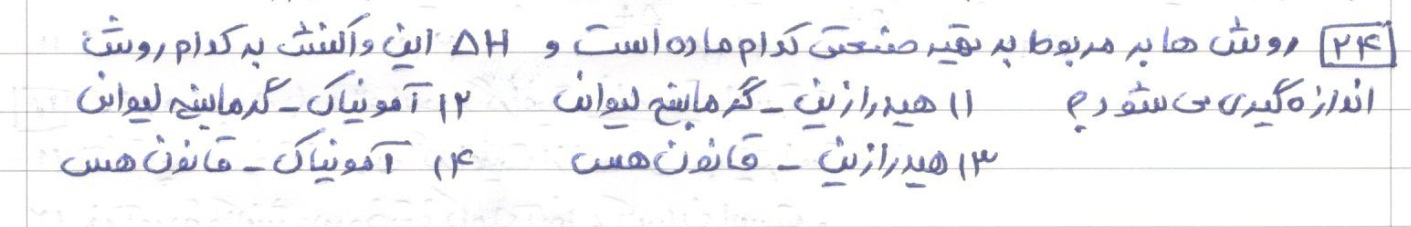 ۲۴ روش هابر مربوط به تهیه صنعتی کدام ماده است و ΔH این واکنش به کدام روش
اندازه‌گیری می شود؟ ۱) هیدرازین - گرماسنج لیوانی ۲) آمونیاک - گرماسنج لیوانی
۳) هیدرازین - قانون هس ۴) آمونیاک - قانون هس